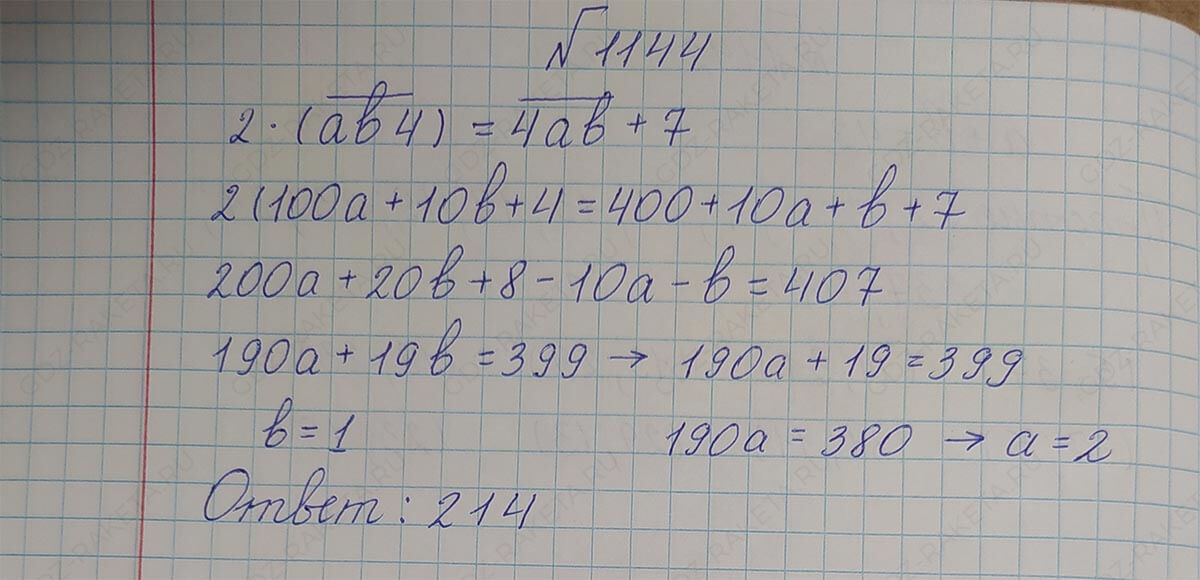 √1144
2·(ab4) = 4ab + 7
2(100a + 10b + 4 = 400 + 10a + b + 7
200a + 20b + 8 - 10a - b = 407
190a + 19b = 399 → 190a + 19 = 399
b = 1 190a = 380 → a = 2
Ответ: 214
GDZ-RAKETA.RU